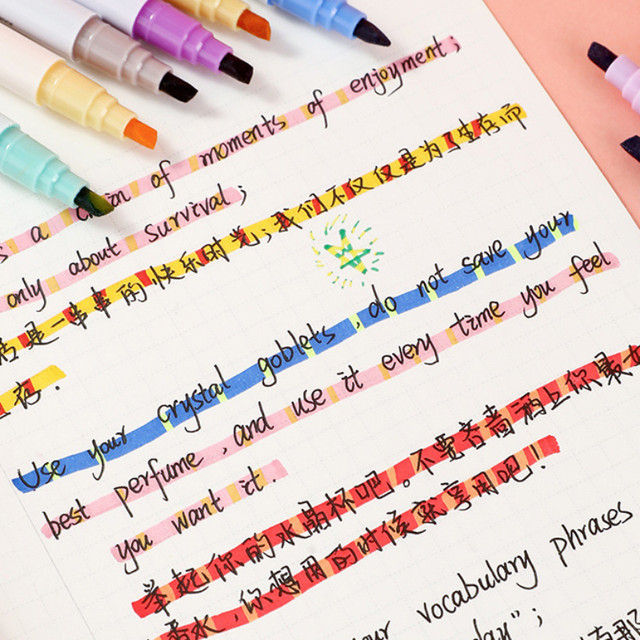 s a chain of moments of enjoyment;
only about survival;
活是一串串的快乐时光;我们不仅仅是为了生存而
存.
Use your crystal goblets , do not save your
best perfume , and use it every time you feel
you want it.
举起你的水晶杯吧。不要吝啬洒上你最
香水, 你想用的时候就享用吧!
our vocabulary phrases
day" ;
有那